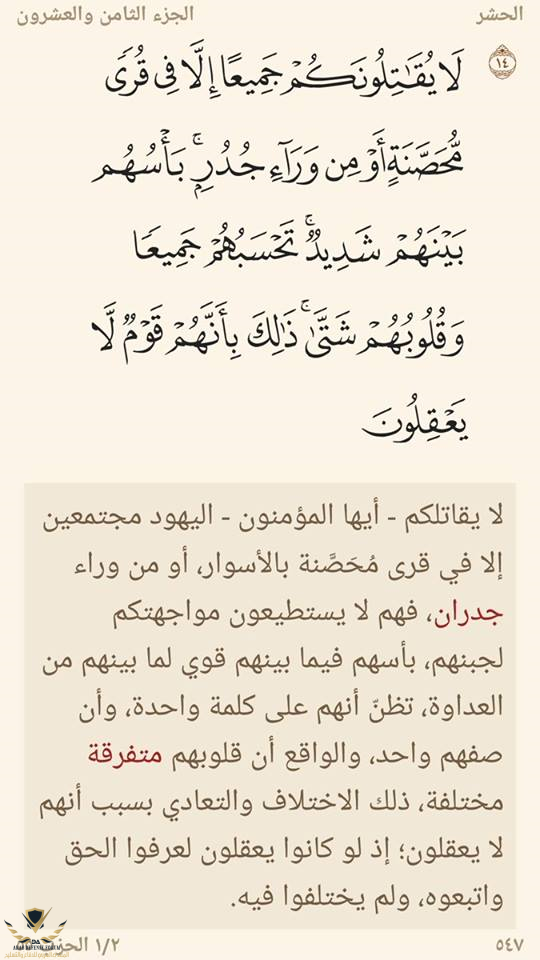 الحشر
الجزء الثامن والعشرون
١٤
لَا يُقَٰتِلُونَكُمْ جَمِيعًا إِلَّا فِي قُرًى
مُّحَصَّنَةٍ أَوْ مِن وَرَآءِ جُدُرِۭۚ بَأْسُهُم
بَيْنَهُمْ شَدِيدٌۚ تَحْسَبُهُمْ جَمِيعًا
وَقُلُوبُهُمْ شَتَّىٰۚ ذَٰلِكَ بِأَنَّهُمْ قَوْمٌ لَّا
يَعْقِلُونَ
لا يقاتلكم - أيها المؤمنون - اليهود مجتمعين
إلا في قرى مُحَصَّنة بالأسوار، أو من وراء
جدران، فهم لا يستطيعون مواجهتكم
لجبنهم، بأسهم فيما بينهم قوي لما بينهم من
العداوة، تظنّ أنهم على كلمة واحدة، وأن
صفهم واحد، والواقع أن قلوبهم متفرقة
مختلفة، ذلك الاختلاف والتعادي بسبب أنهم
لا يعقلون؛ إذ لو كانوا يعقلون لعرفوا الحق
واتبعوه، ولم يختلفوا فيه.
٥٤٧
١/٢